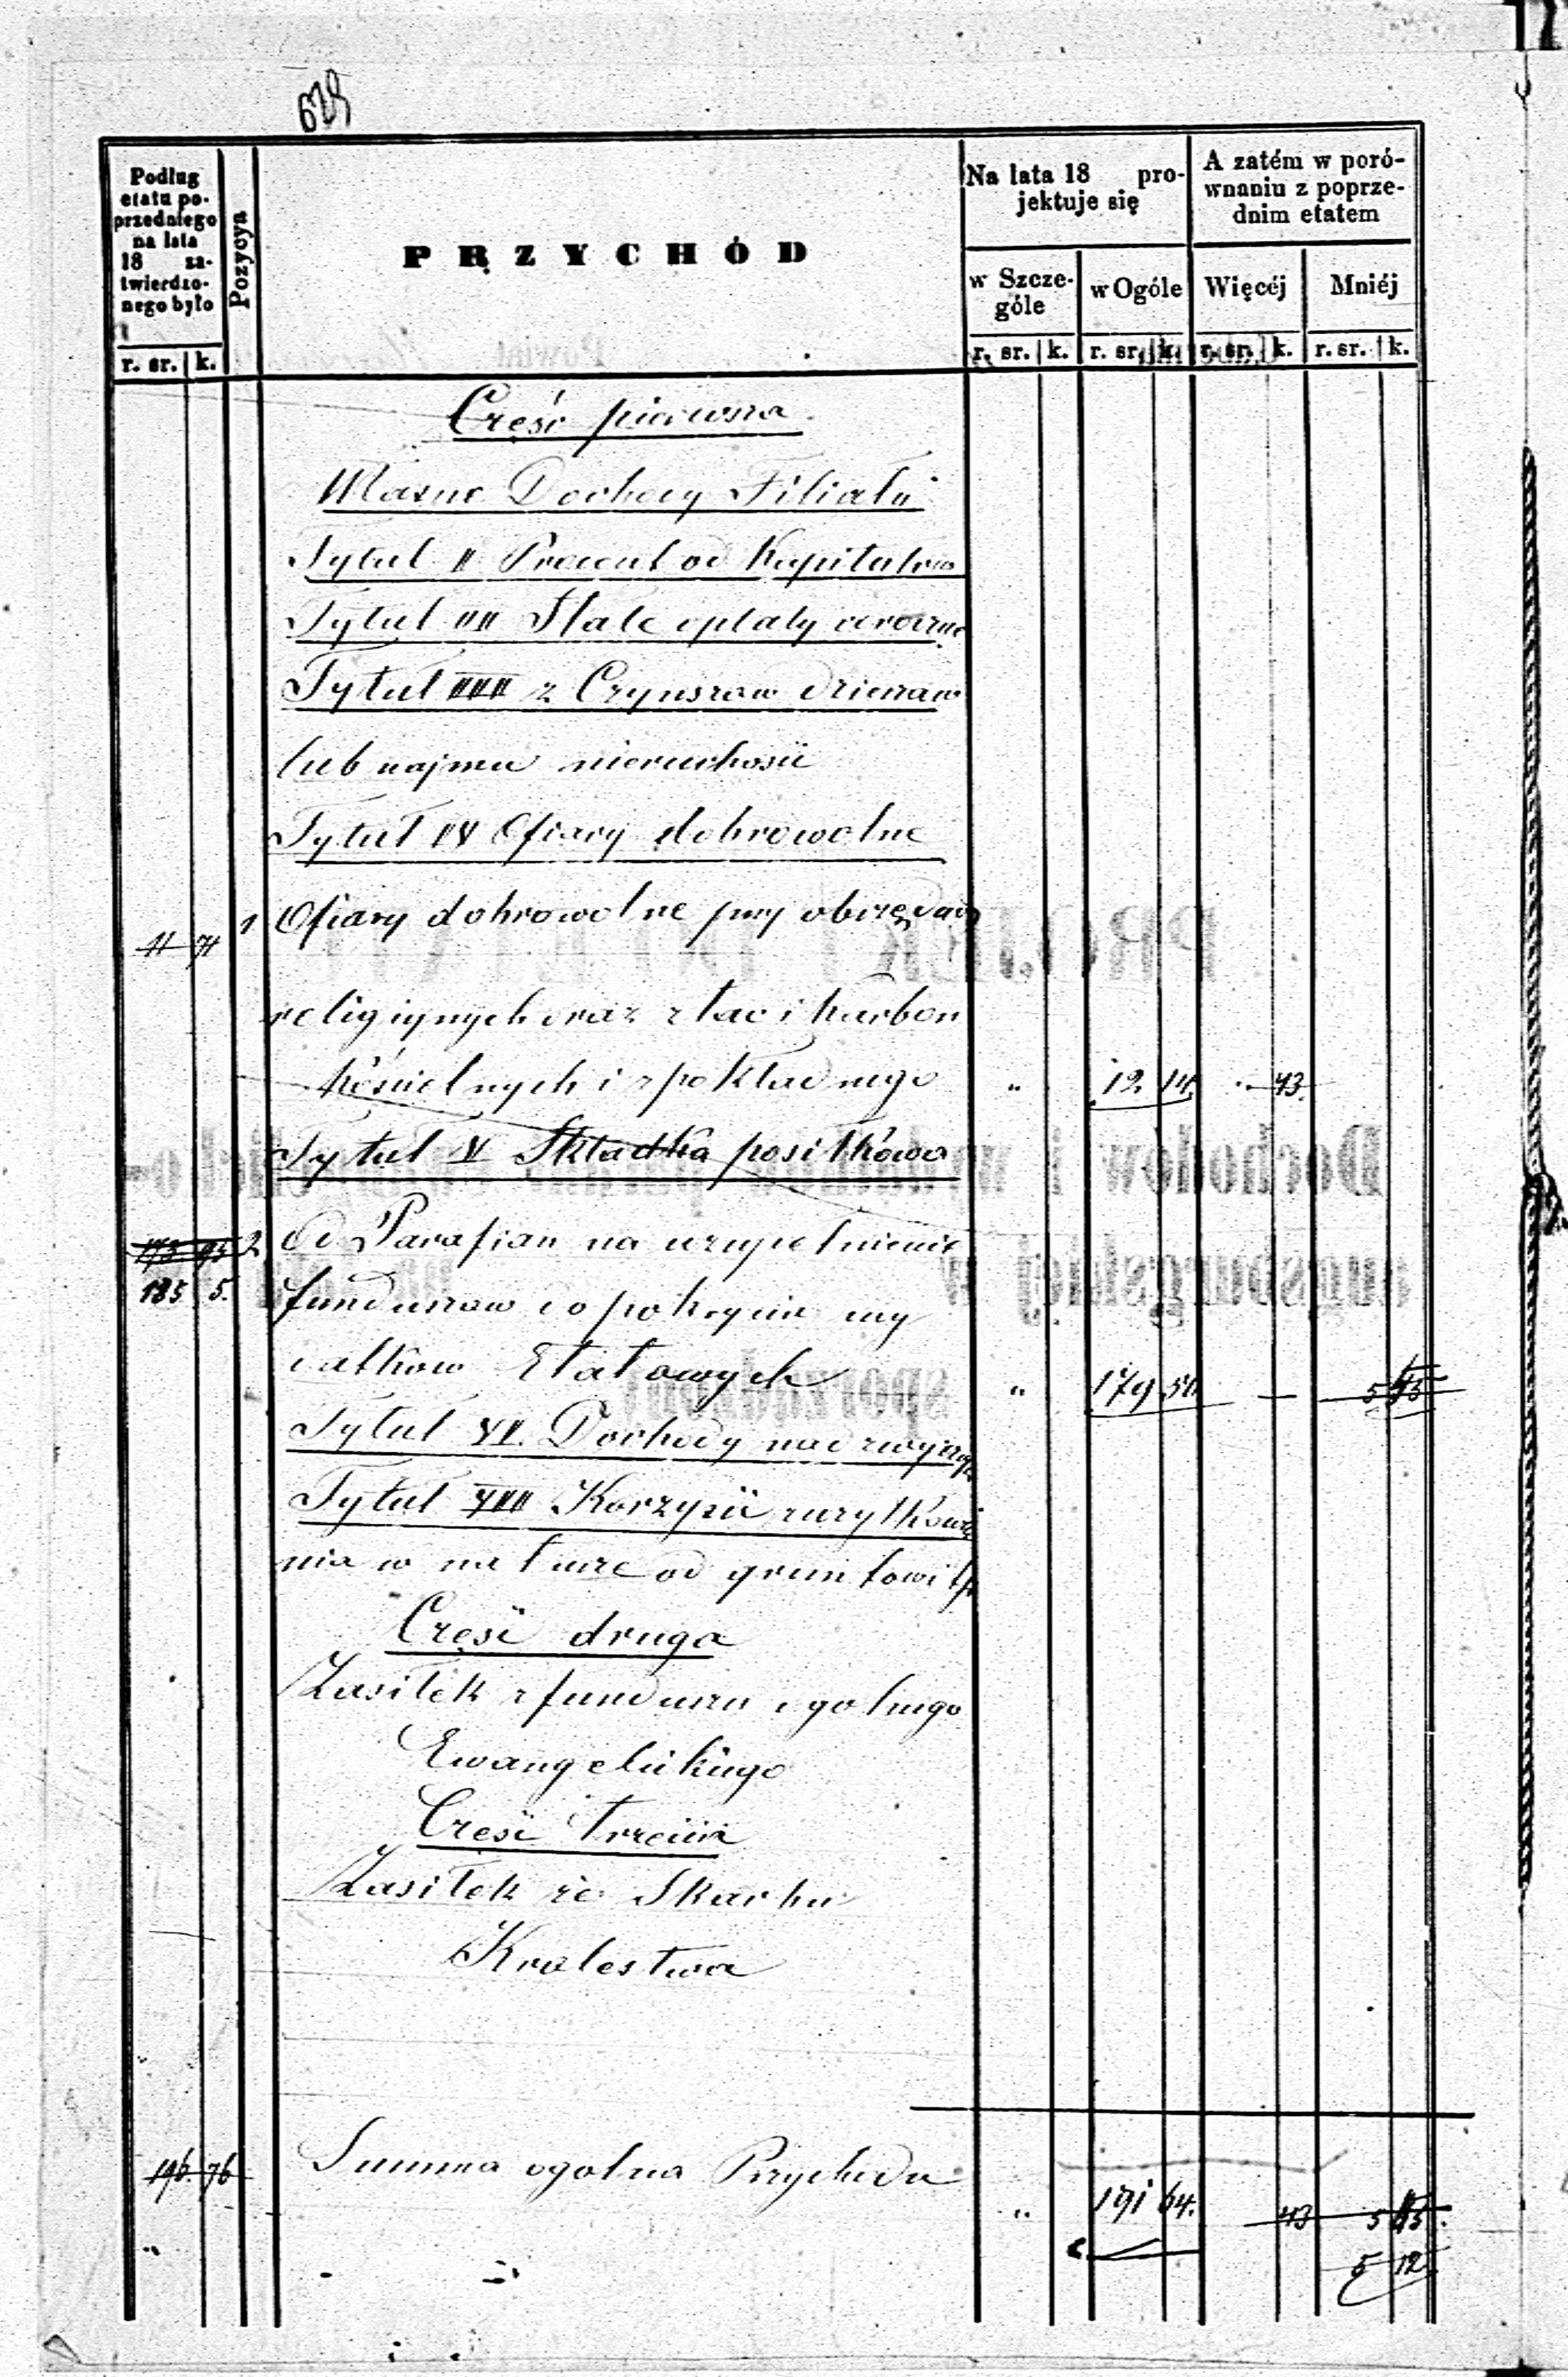 629
Podług
etatu po-
przedniego
na lata
18 za-
twierdzo-
nego było
r. sr. k.
Pozycya
PRZYCHÓD
Na lata 18 pro-
jektuje się
w Szcze-
góle
r. sr. k.
w Ogóle
r. sr. k.
A zatém w poró-
wnaniu z poprze-
dnim etatem
Więcéj
r. sr. k.
Mniéj
r. sr. k.
Część pierwsza
Własne Dochody Filiału
Tytuł II Procent od Kapitałow
Tytuł III Stałe opłaty coroczne
Tytuł IIII z Czynszow dzierzaw
lub najmu nieruchości
Tytuł IV Ofiary dobrowolne
11 71 1 Ofiary dobrowolne przy obrzędach
religijnych oraz z tac i karbon
kościelnych i z pokładnego „ 12 14 43
Tytuł V Składka posiłkowa
173 95 2 Od Parafian na uzupełnienie
185 5. funduszow do pokrycia wy
datkow Etatowych „ 179 50 — 5
Tytuł VI. Dochody nadzwyczaj
Tytuł VII Korzyści z użytkowa
nia w naturze od gruntow i tp
Część druga
Zasiłek z funduszu ogolnego
Ewangelickiego
Część trzecia
Zasiłek ze Skarbu
Krolestwa
196 76 Summa ogolna Przychodu „ 191 64. 43 5
5 12